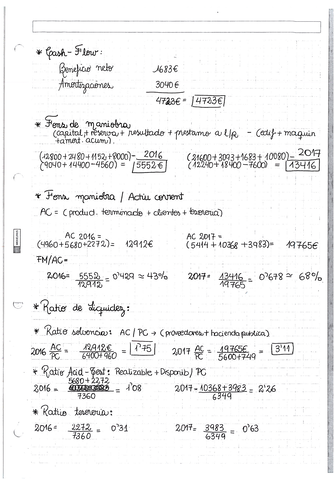 * Cash-Flow:
Beneficio neto 1683€
Amortizaciones 3040€
4723€ = 4723€
* Fons de maniobra
(capital + reserva + resultado + prestamo a L/R - (edif + maquin
+ amort. acum).
(12800+2480+1152+8000)- 2016
(9040+14400-4560) = 5552€
(21600+3093+1683+10080)- 2017
(12240+18400-7600) = 13416
* Fons maniobra / Actiu corrent
AC = (product. terminado + clientes + tesoreria)
AC 2016 =
(4960+5680+2272) = 12912€
AC 2017 =
(5414+10368+3983) = 19765€
FM/AC=
2016= 5552/12912 = 0'429 ≈ 43%
2017= 13416/19765 = 0'678 ≈ 68%
* Ratio de liquidez:
* Ratio solvencia: AC/PC → (proveedores + hacienda publica)
2016 AC/PC = 12912€/6400+960 = 1'75
2017 AC/PC = 19765€/5600+749 = 3'11
* Ratio Acid-Test: Realizable + Disponib/PC
2016 = 5680+2272/7360 = 1'08
2017 = 10368+3983/6349 = 2'26
* Ratio tesoreria:
2016= 2272/7360 = 0'31
2017= 3983/6349 = 0'63